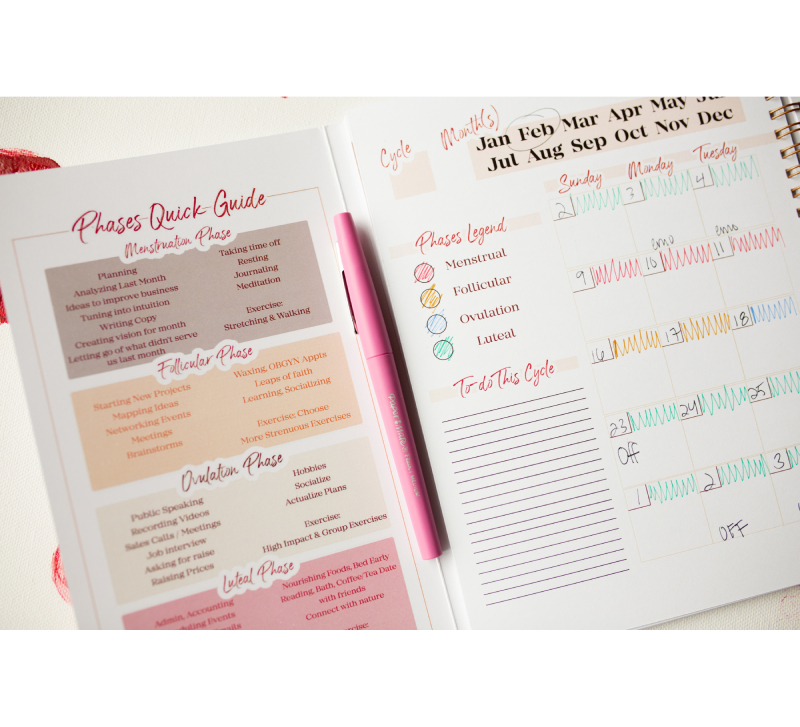 Phases Quick Guide
Menstruation Phase
Planning
Analyzing Last Month
Ideas to improve business
Tuning into intuition
Writing Copy
Creating vision for month
Letting go of what didn't serve
us last month
Taking time off
Resting
Journaling
Meditation
Exercise:
Stretching & Walking
Follicular Phase
Starting New Projects
Mapping Ideas
Networking Events
Meetings
Brainstorms
Waxing, OBGYN Appts
Leaps of faith
Learning, Socializing
Exercise: Choose
More Strenuous Exercises
Ovulation Phase
Public Speaking
Recording Videos
Sales Calls / Meetings
Job interview
Asking for raise
Raising Prices
Hobbies
Socialize
Actualize Plans
Exercise:
High Impact & Group Exercises
Luteal Phase
Admin, Accounting
Events
Nourishing Foods, Bed Early
Reading, Bath, Coffee/Tea Date
with friends
Connect with nature
Exercise:
Cycle
Month(s)
Jan Feb Mar Apr May
Jul Aug Sep Oct Nov Dec
Phases Legend
Menstrual
Follicular
Ovulation
Luteal
To-do This Cycle
Sunday Monday Tuesday
2 3 4
9 10 11
16 17 18
23 24 25
Off
1 2 3
OFF